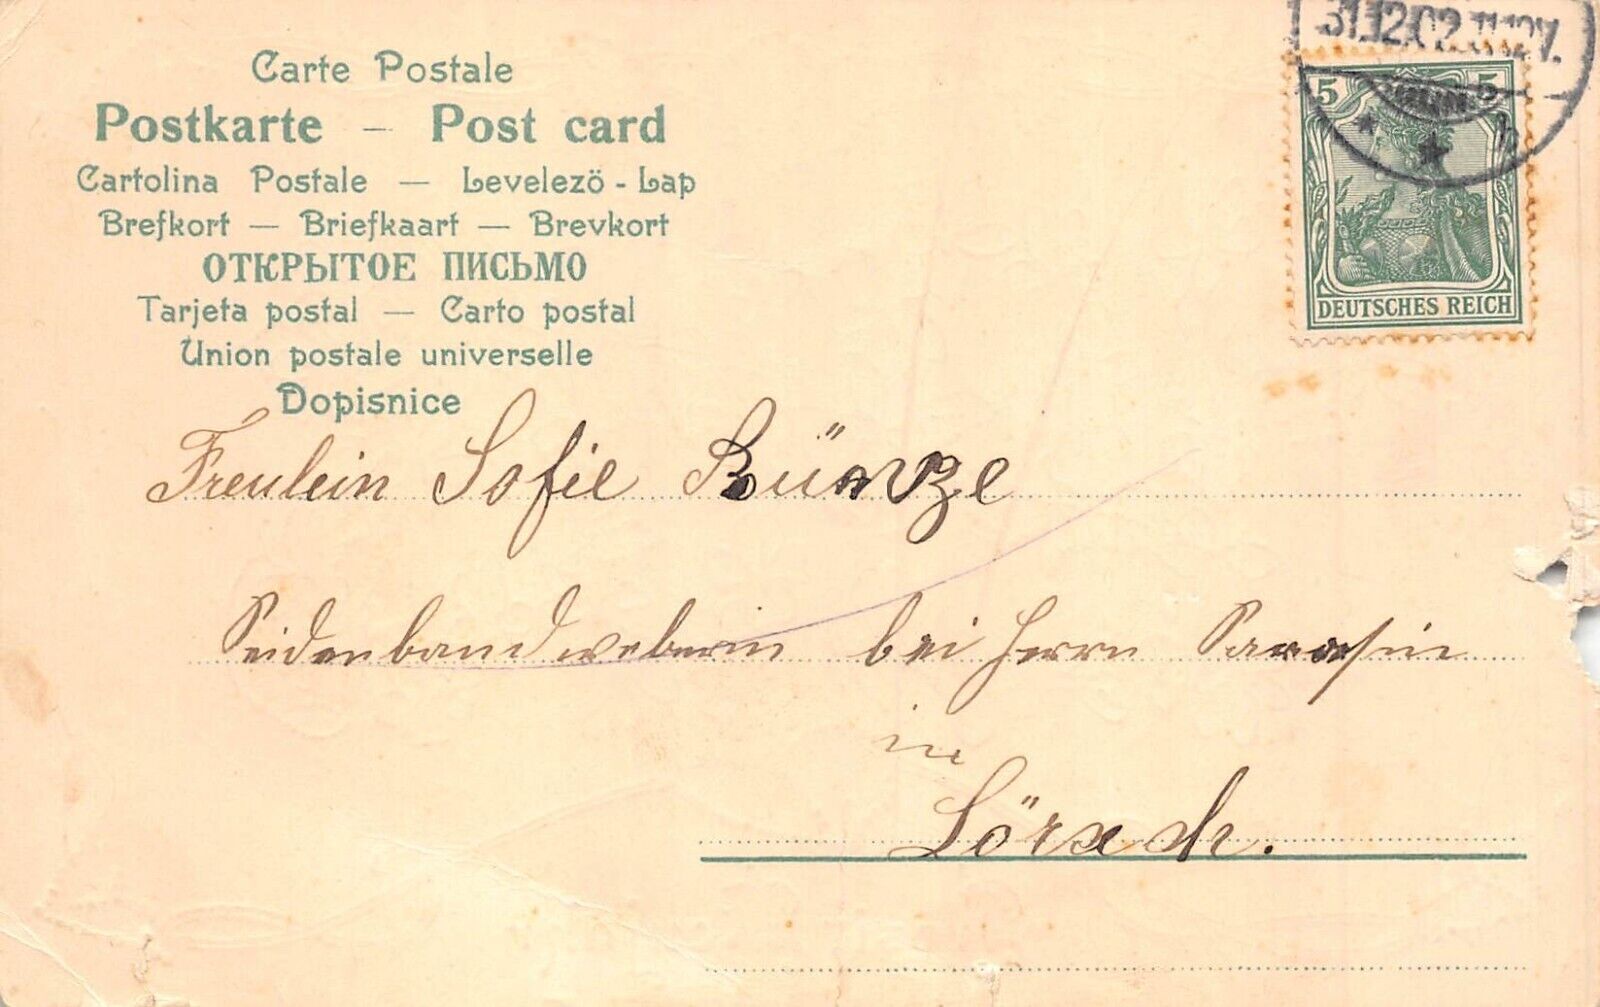 Carte Postale
Postkarte — Post card
Cartolina Postale — Levelezö-Lap
Brefkort — Briefkaart — Brevkort
ОТКРЫТОЕ ПИСЬМО
Tarjeta postal — Carto postal
Union postale universelle
Dopisnice
31.12.02.11-12V.
5 5
DEUTSCHES REICH
Freulein Sofie Bünze
Seidenbandweberin bei Herrn Sarasin
in
Lörrach.